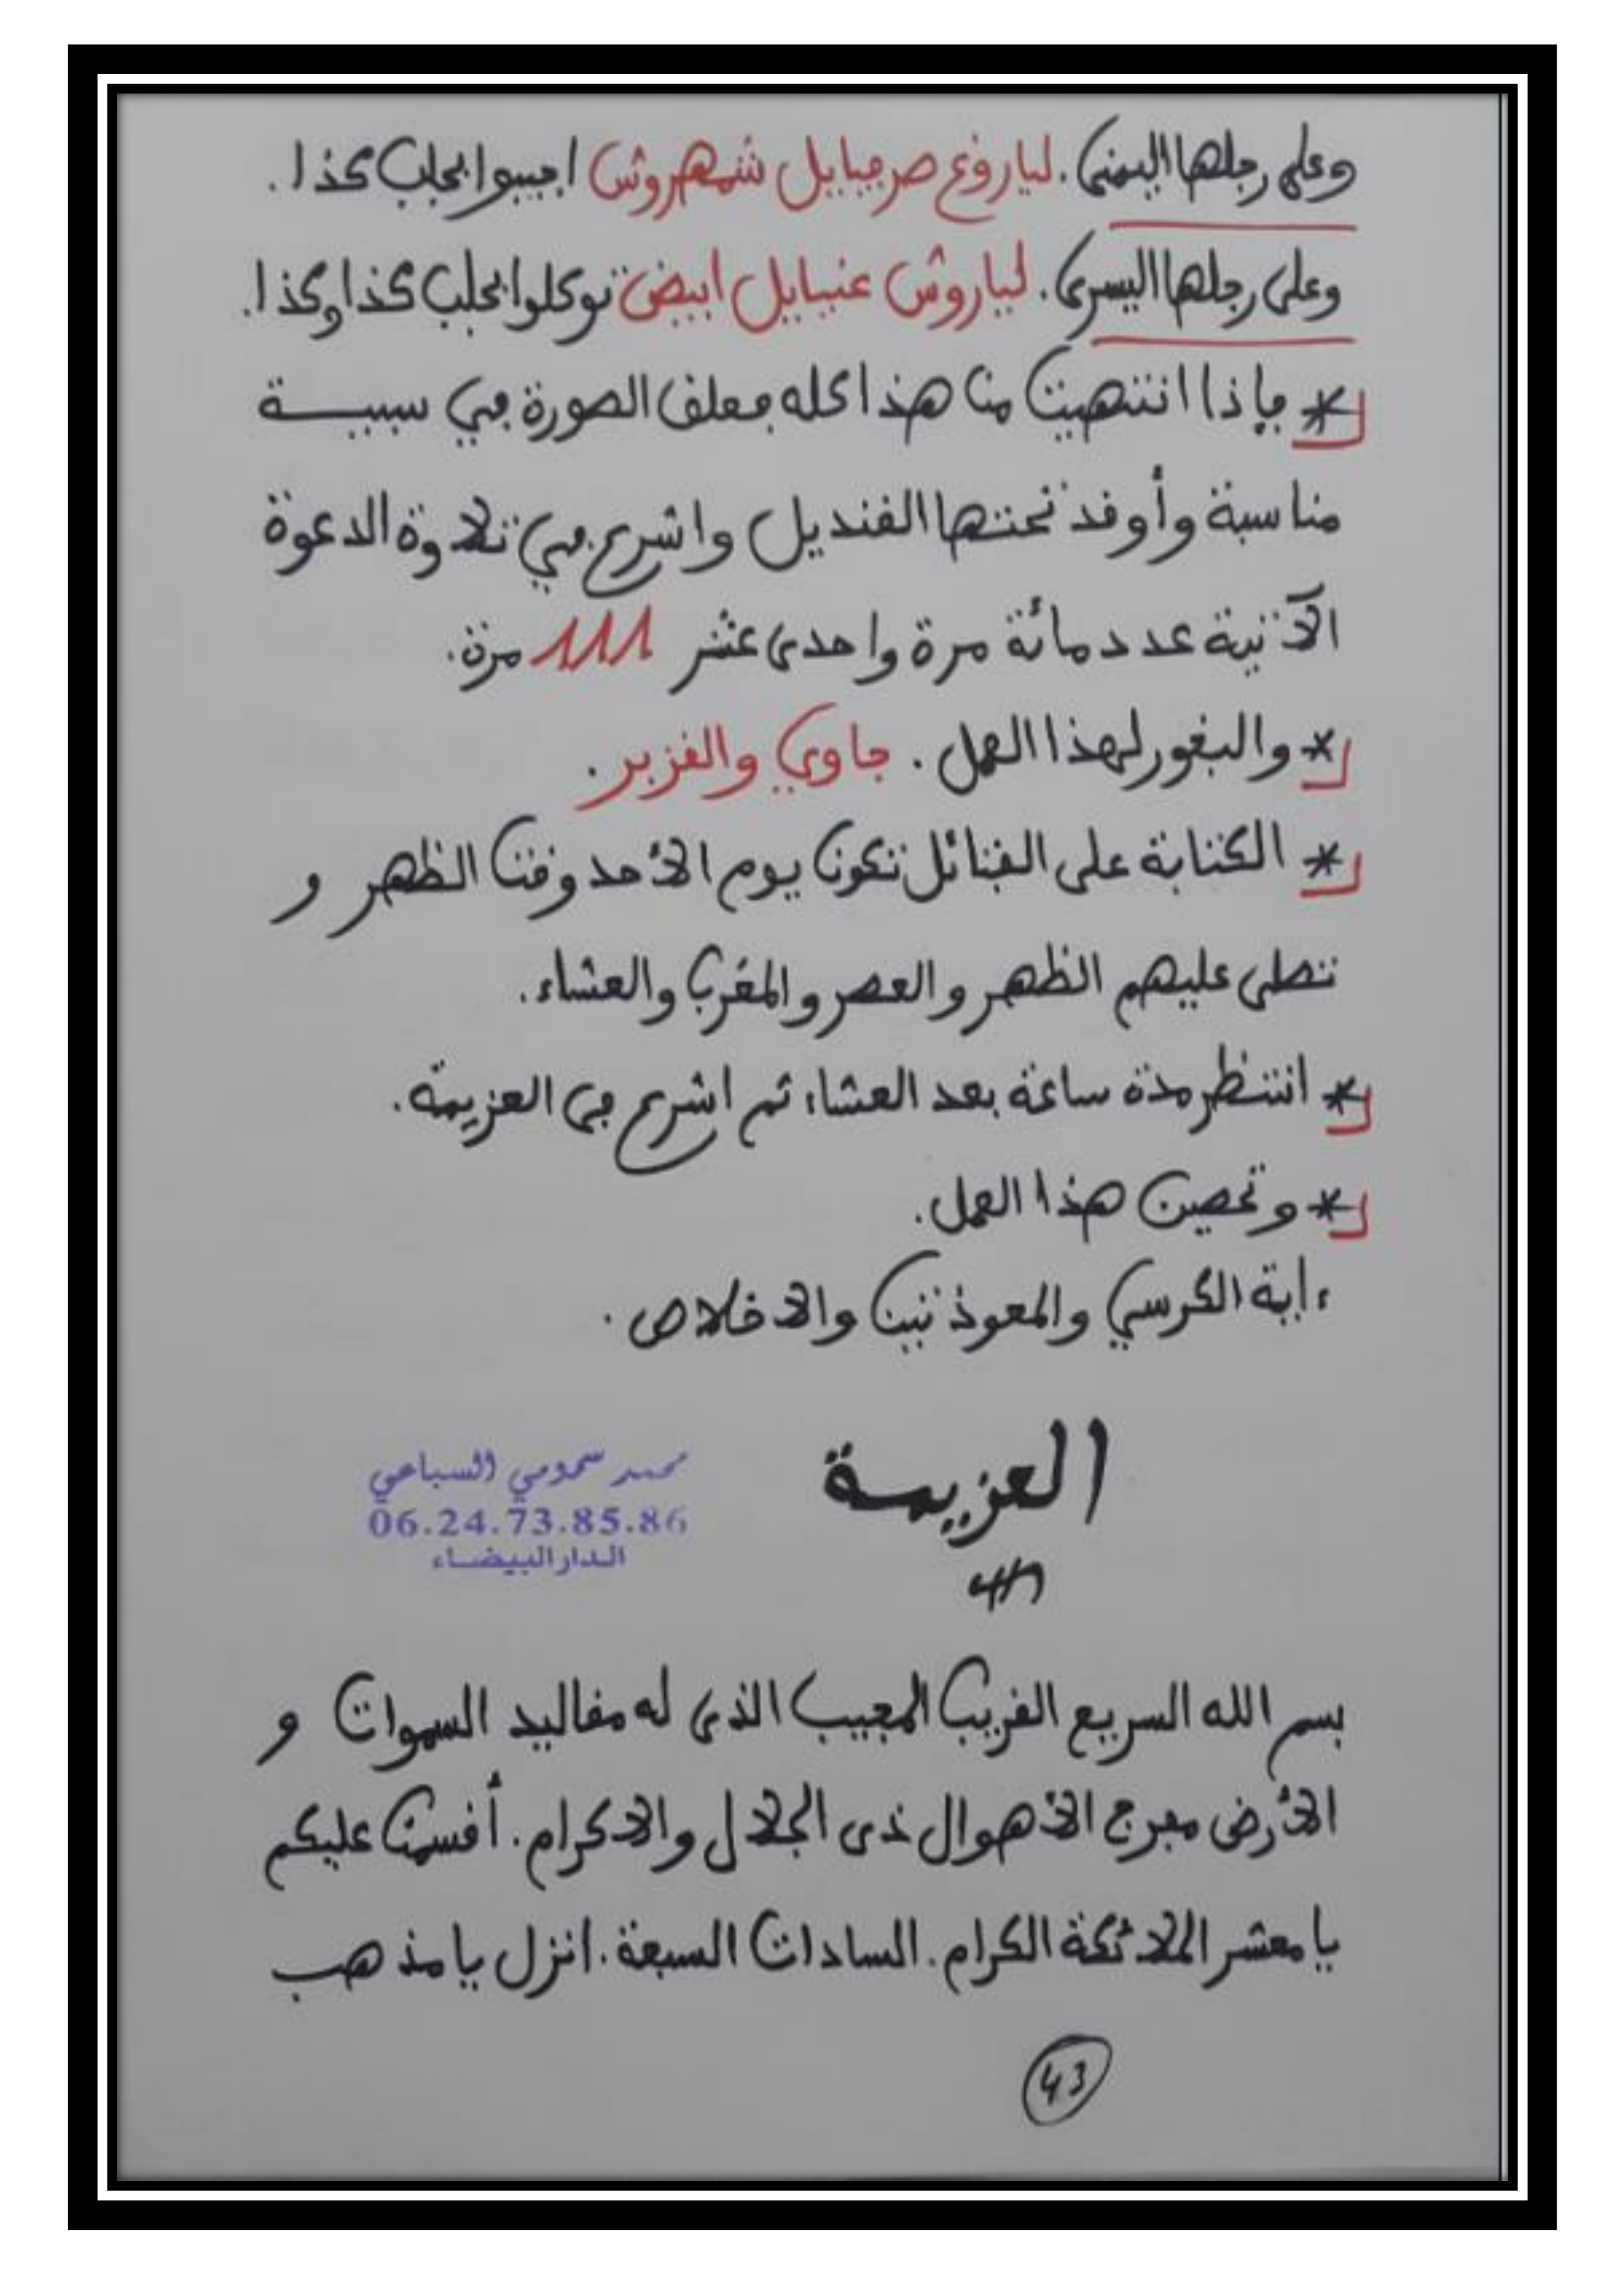 وعلى رجلها اليمنى. لياروغ صرفيايل شمهروش اجيبوا بجلب كذا.
وعلى رجلها اليسرى. لياروش عنيايل ابيض توكلوا بجلب كذا وكذا.
* فإذا انتهيت من هذا كله فعلق الصورة في سبيبة
مناسبة وأوقد تحتها القنديل واشرع في تلاوة الدعوة
الآتية عدد مائة مرة واحدى عشر 111 مرة.
* والبخور لهذا العمل. جاوي والقزبر.
* الكتابة على الفتائل تكون يوم الأحد وقت الظهر و
تصلى عليهم الظهر والعصر والمغرب والعشاء.
* انتظر مدة ساعة بعد العشاء ثم اشرع في العزيمة.
* وتحصين هذا العمل.
ءاية الكرسي والمعوذتين والاخلاص.
العزيمة
محمد سحومي السباعي
06.24.73.85.86
الدار البيضاء
بسم الله السريع القريب المجيب الذى له مقاليد السموات و
الأرض مفرج الأهوال ذى الجلال والاكرام. أقسمت عليكم
يا معشر الملائكة الكرام. السادات السبعة. انزل يا مذهب
43